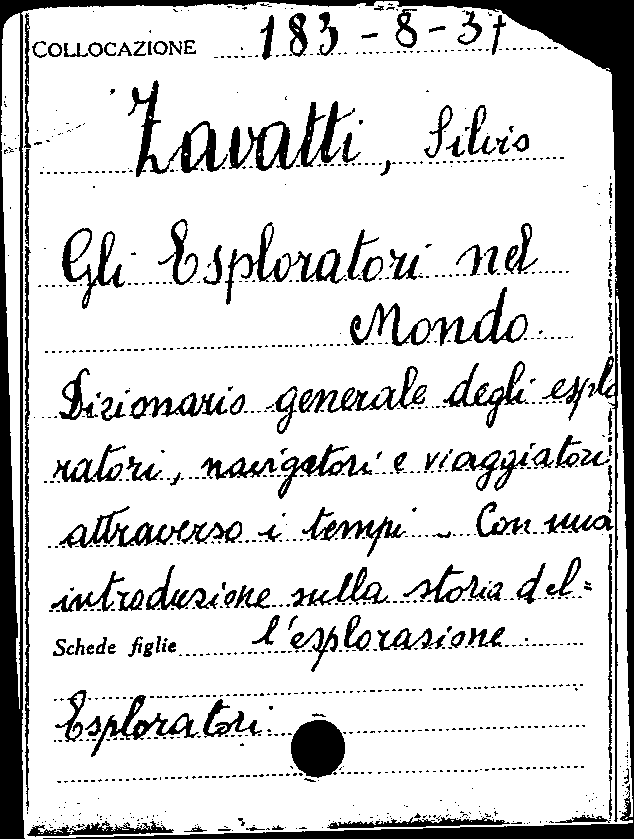 COLLOCAZIONE 183-8-37
Zavatti, Silvio
Gli Esploratori nel
Mondo.
Dizionario generale degli esplo
ratori, navigatori e viaggiatori
attraverso i tempi - Con una
introduzione sulla storia del=
Schede figlie l'esplorasione.
Esploratori.